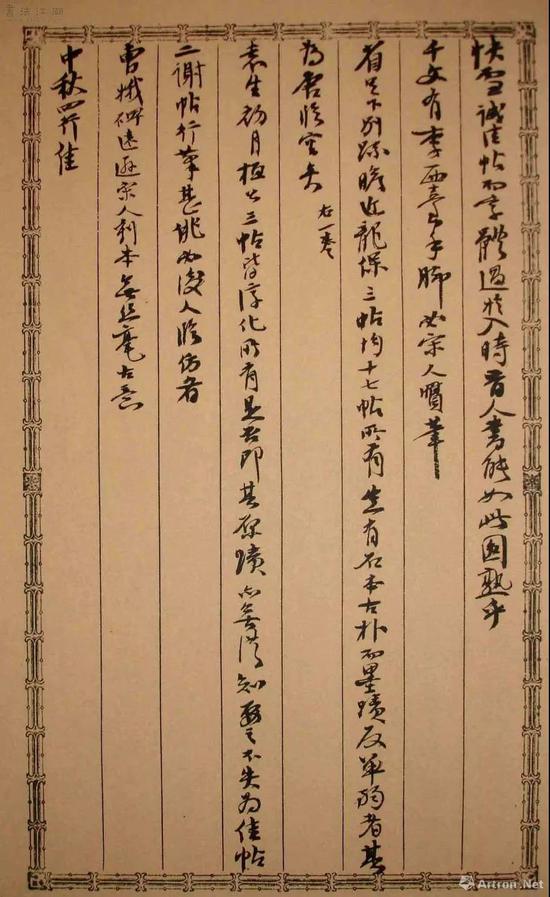 快雪誠佳帖而字體過於入時晉人書能如此圓熟乎
千文有李西臺手腳必宋人贗筆
省足下別疏瞻近龍保三帖均十七帖所有豈有石本古朴而墨蹟反單弱者其
為唐臨宜矣 右一卷
袁生初月極 三帖皆淳化所有是否即其原蹟亦無從知要之不失為佳帖
二謝帖行筆甚 必後人臨仿者
曹娥碑遠遜宋人刻本無絲毫古意
中秋四行佳
書法江湖
Artron.Net